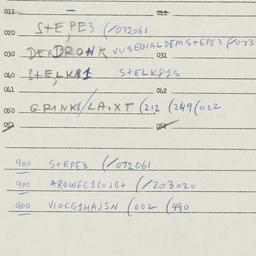 011 — 012
020 STEPE3 (/072061
030 DEBRONK VUSERHALDEMSTEPE3 (/073
031
040 STELK81 STELK81S
041 042
050 GRINKS/LA.XT (212 (249(022
051 052
900 STEPE3 (/072061
900 AROWEC1COJG+ (/203020
900 VIOCG1HAJSN (002 (490